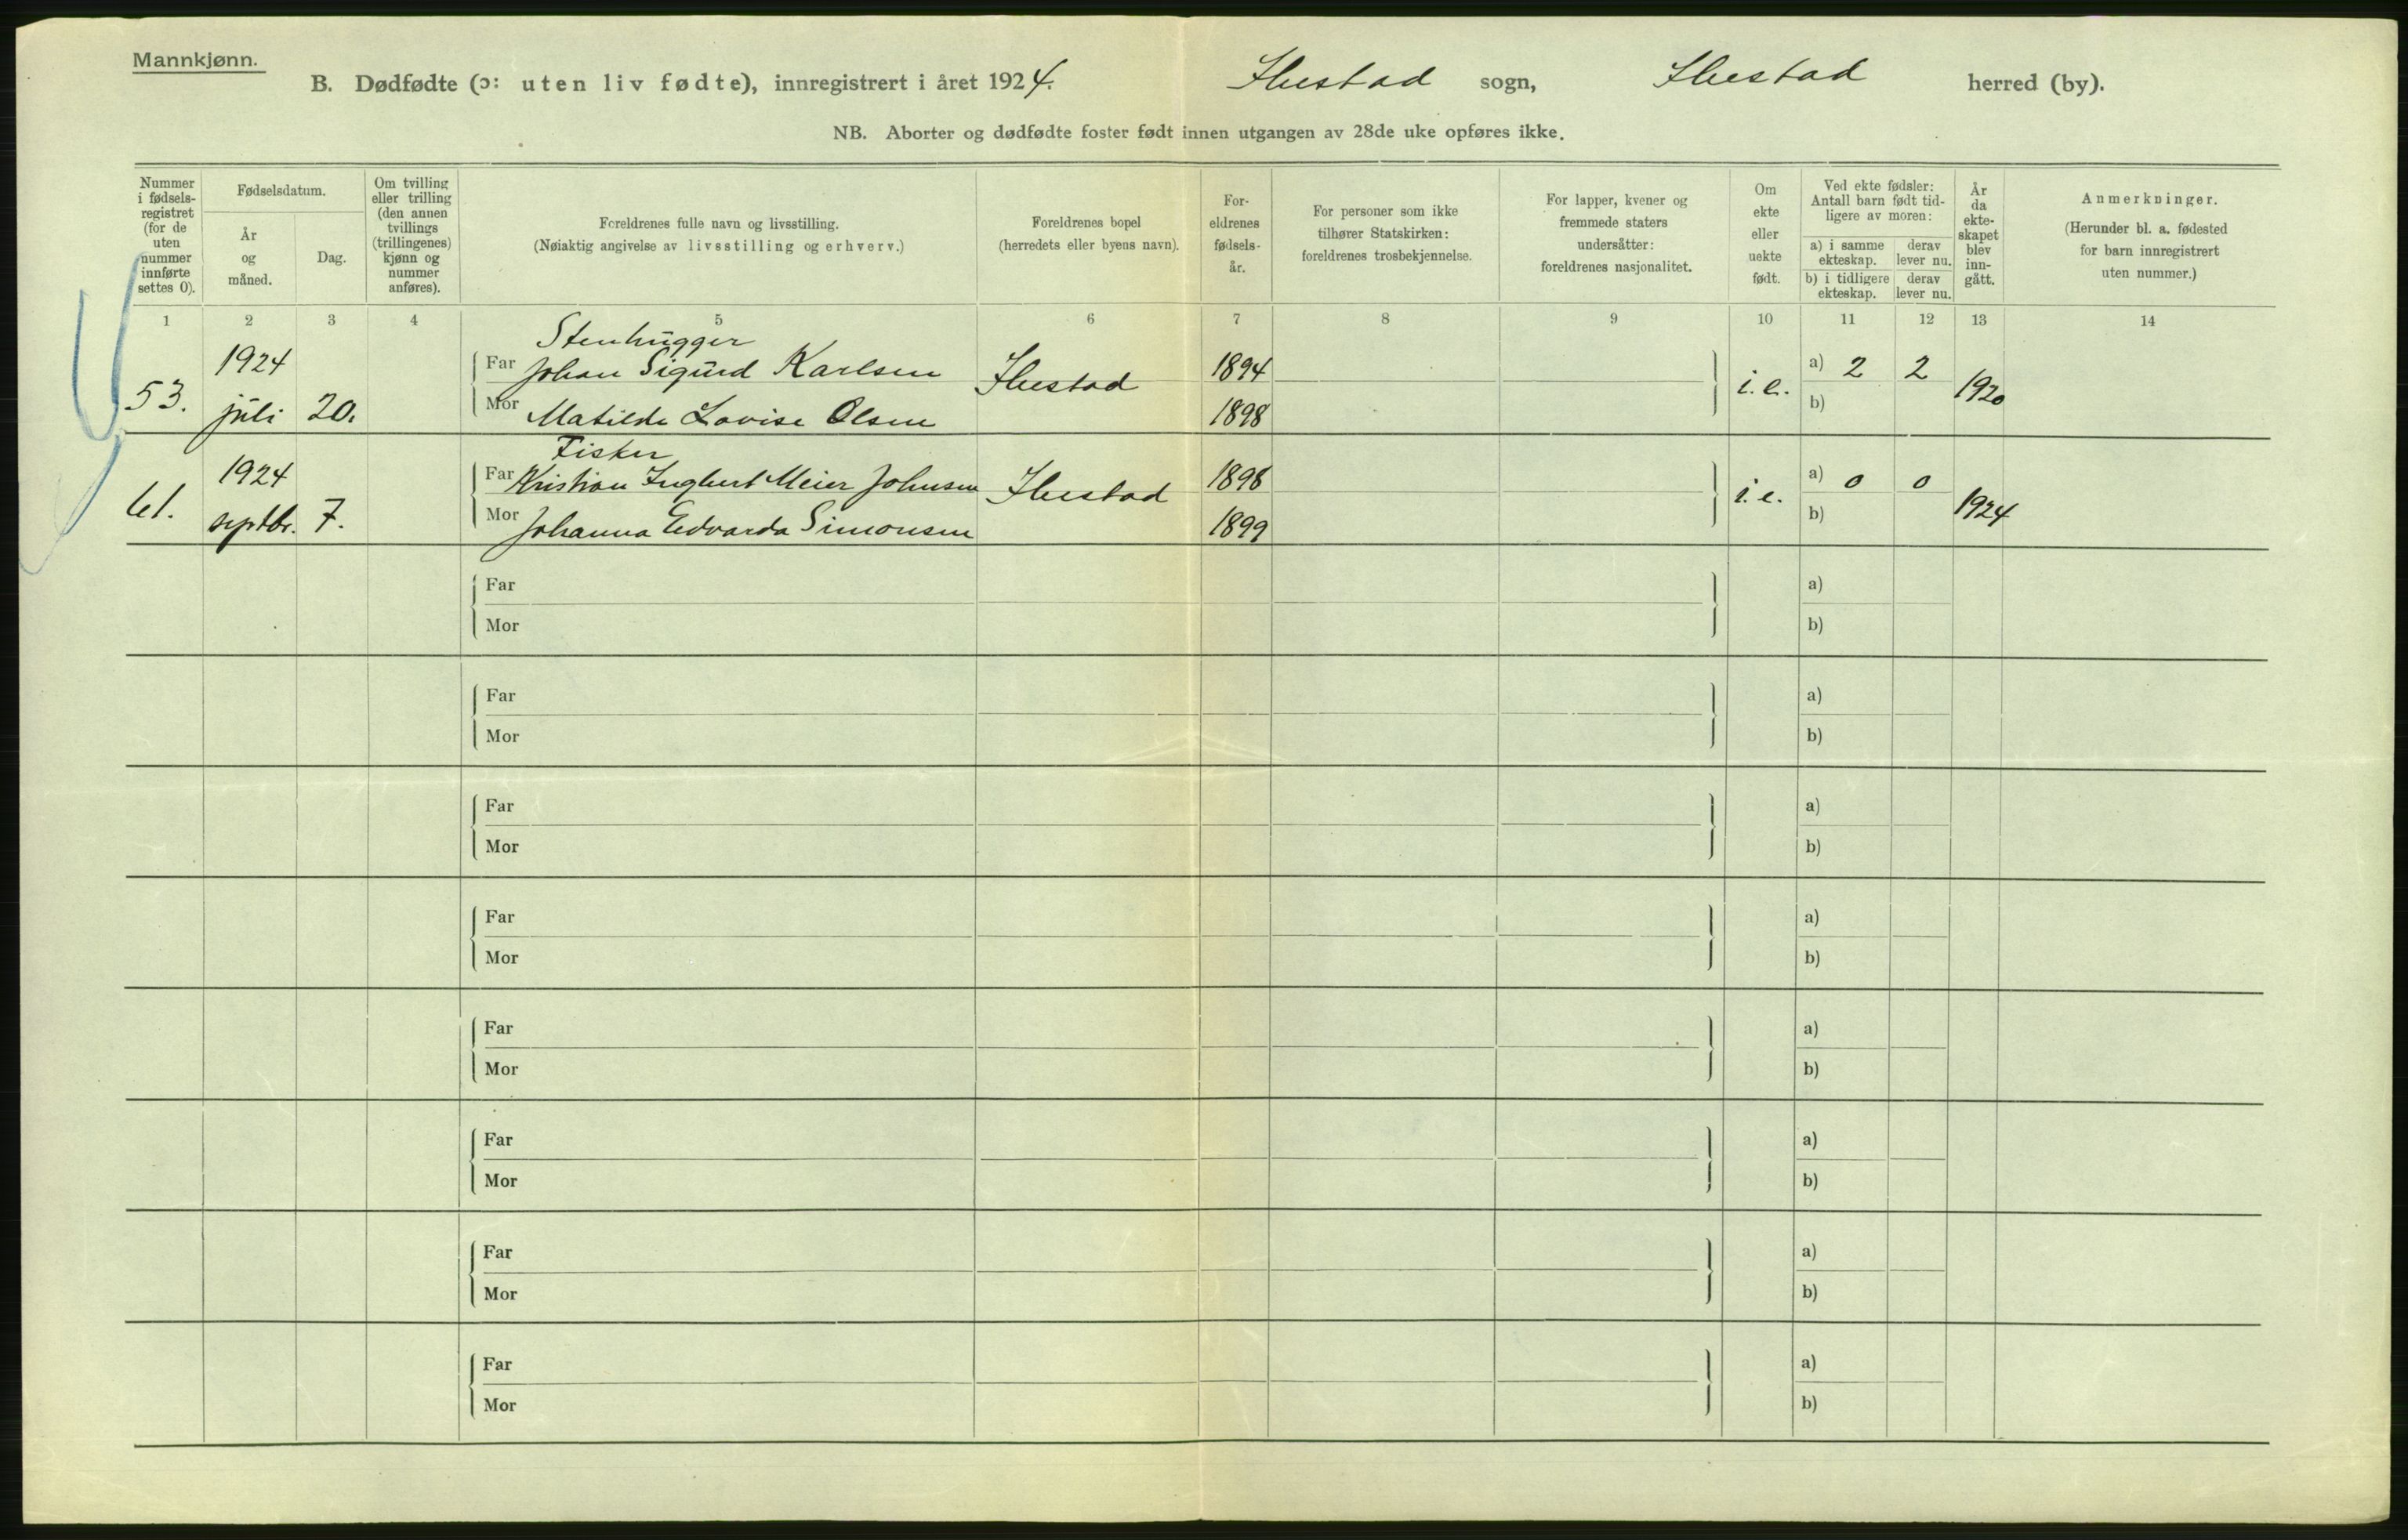 Mannkjønn.
B. Dødfødte (ɔ: uten liv fødte), innregistrert i året 1924. Ibestad sogn, Ibestad herred (by).
NB. Aborter og dødfødte foster født innen utgangen av 28de uke opføres ikke.
Nummer i fødsels-registret (for de uten nummer innførte settes 0).
Fødselsdatum.
År og måned.
Dag.
Om tvilling eller trilling (den annen tvillings (trillingenes) kjønn og nummer anføres).
Foreldrenes fulle navn og livsstilling.
(Nøiaktig angivelse av livsstilling og erhverv.)
Foreldrenes bopel
(herredets eller byens navn).
For-eldrenes fødsels-år.
For personer som ikke tilhører Statskirken: foreldrenes trosbekjennelse.
For lapper, kvener og fremmede staters undersåtter: foreldrenes nasjonalitet.
Om ekte eller uekte født.
Ved ekte fødsler: Antall barn født tid-ligere av moren:
a) i samme ekteskap. derav lever nu.
b) i tidligere ekteskap. derav lever nu.
År da ekte-skapet blev inn-gått.
Anmerkninger.
(Herunder bl. a. fødested for barn innregistrert uten nummer.)
1 2 3 4 5 6 7 8 9 10 11 12 13 14
Stenhugger
53. 1924 juli 20. Far Johan Sigurd Karlsen Ibestad 1894 i.e. a) 2 2 1920
Mor Matilde Lovise Olsen 1898 b)
Fisker
61. 1924 septbr. 7. Far Kristian Ingbert Meier Johnsen Ibestad 1898 i.e. a) 0 0 1924
Mor Johanna Edvarda Simonsen 1899 b)
Far a)
Mor b)
Far a)
Mor b)
Far a)
Mor b)
Far a)
Mor b)
Far a)
Mor b)
Far a)
Mor b)
Far a)
Mor b)
Far a)
Mor b)